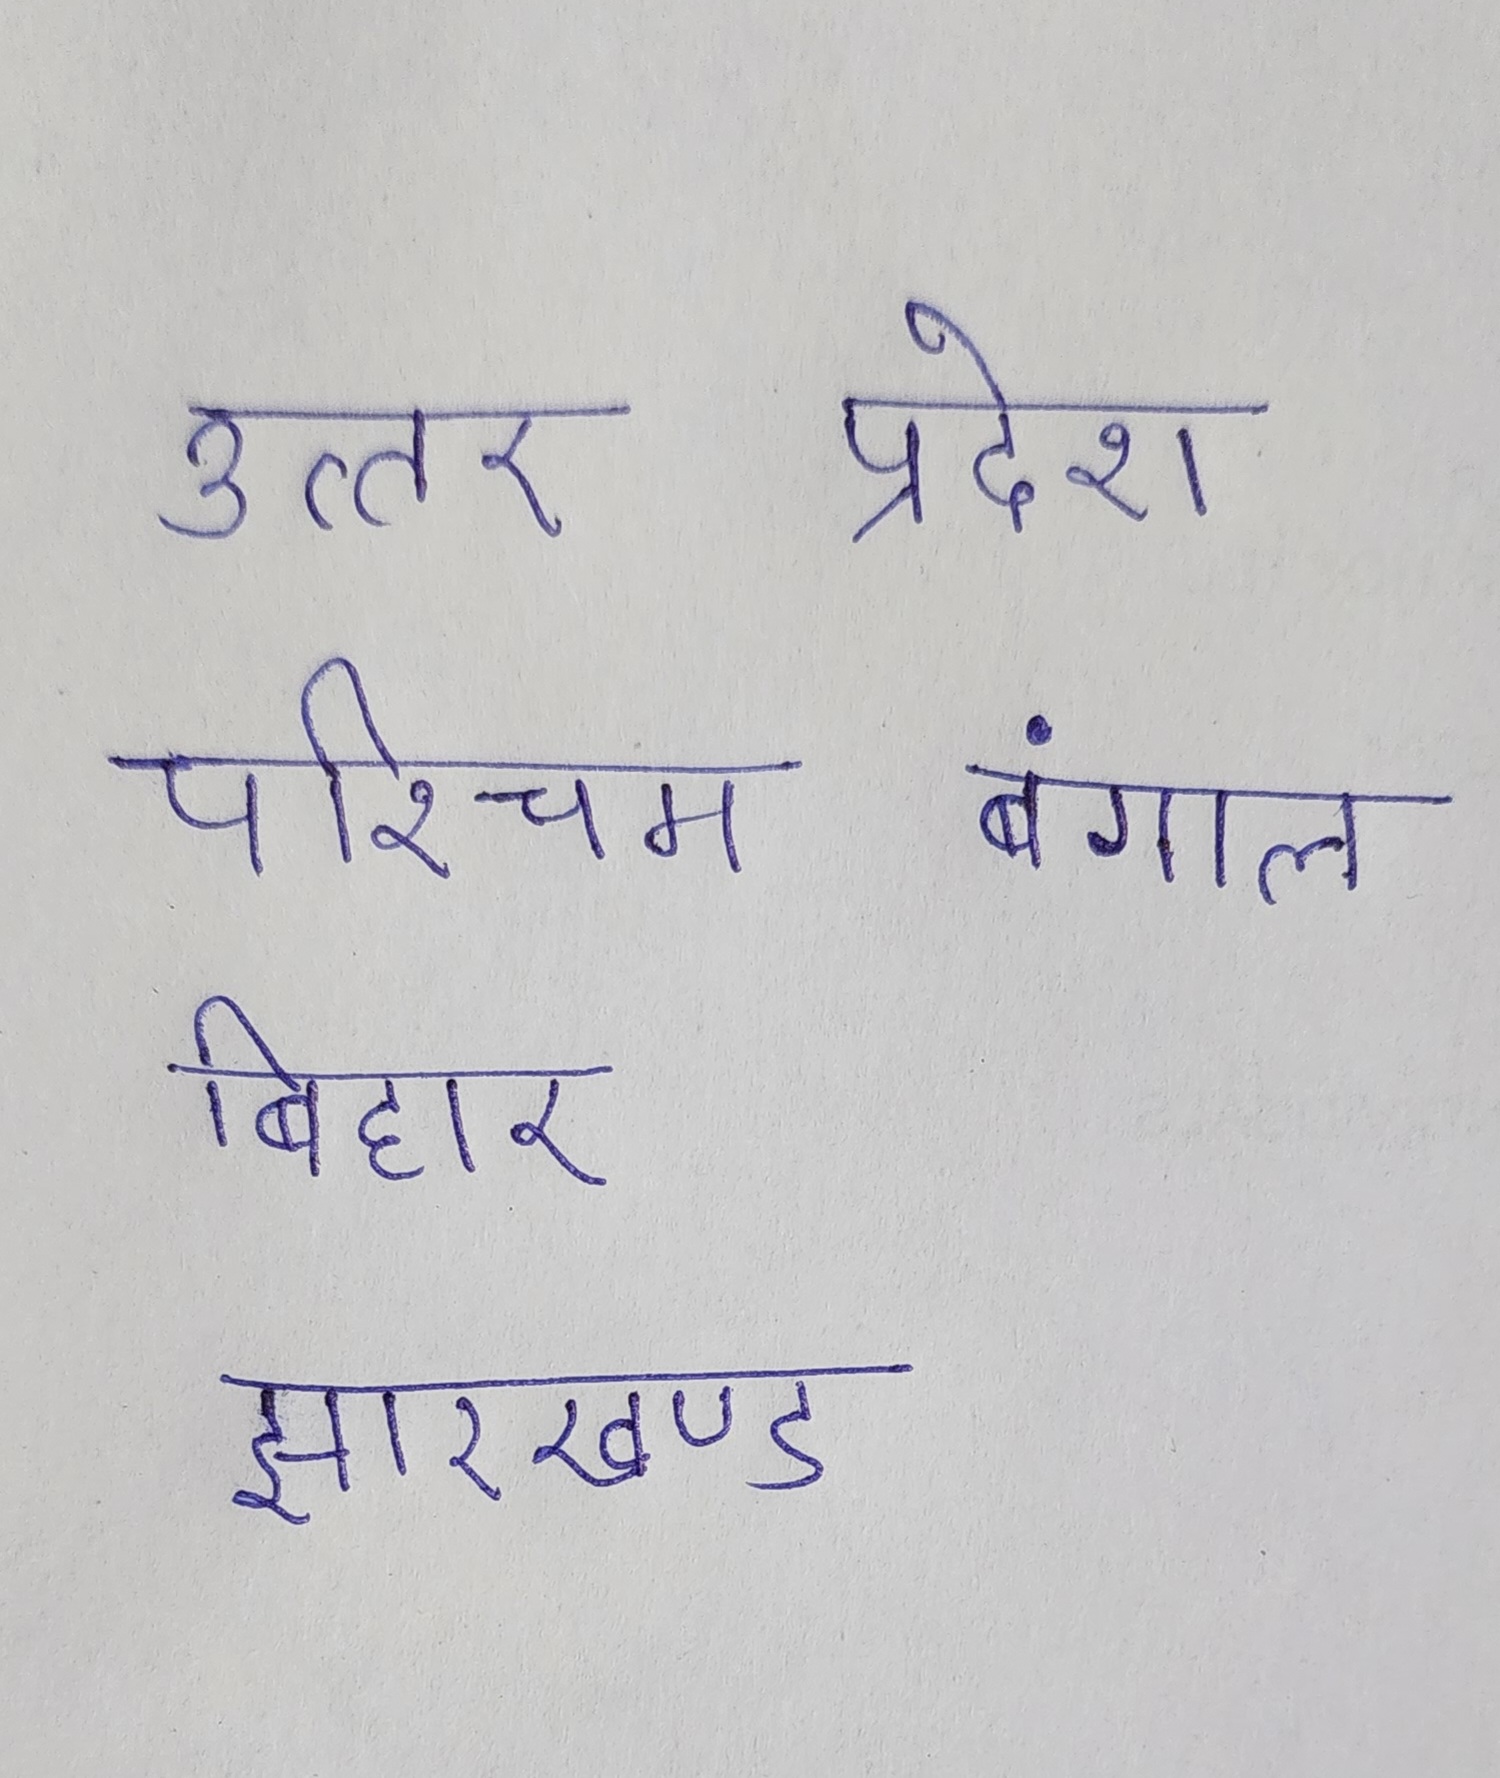 उत्तर प्रदेश
पश्चिम बंगाल
बिहार
झारखण्ड